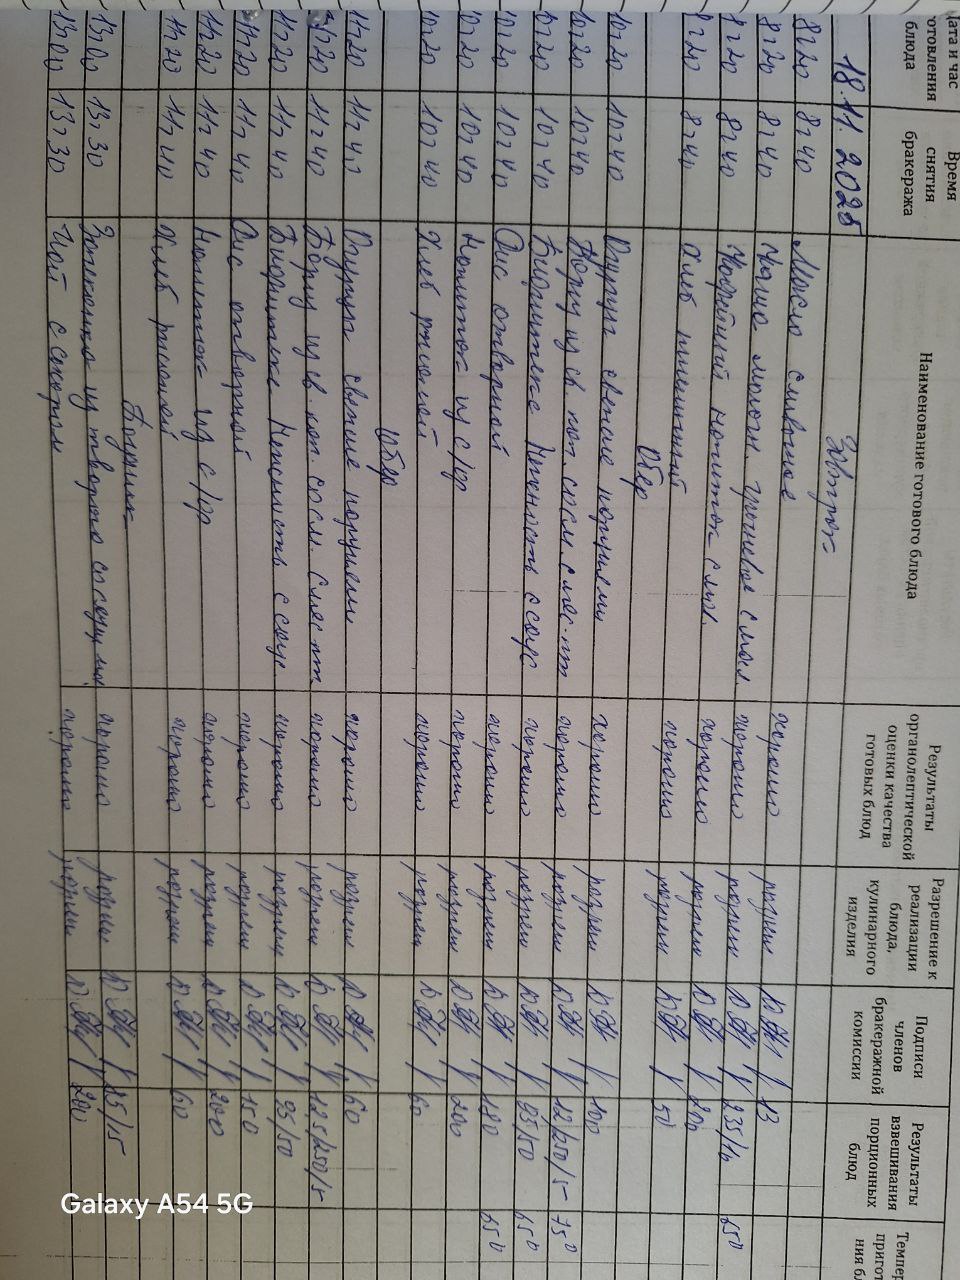 Дата и час изготовления блюда | Время снятия бракеража | Наименование готового блюда | Результаты органолептической оценки качества готовых блюд | Разрешение к реализации блюда, кулинарного изделия | Подписи членов бракеражной комиссии | Результаты взвешивания порционных блюд
18.11.2025 Завтрак
8ч20 8ч40 Масло сливочное хорошо разреш 13
8ч20 8ч40 Каша молочн. гречневая с масл. хорошо разреш
8ч20 8ч40 Кофейный напиток с мол. хорошо разреш 200
8ч20 8ч40 Хлеб пшеничный хорошо разреш 50
Обед
10ч20 10ч40 Огурцы свежие порциями хорошо разреш 100
10ч20 10ч40 Борщ из св. кап. со см. с мяс. пт хорошо разреш
10ч20 10ч40 Бифштекс Нежность с соус хорошо разреш 95/50
10ч20 10ч40 Рис отварной хорошо разреш 180
10ч20 10ч40 Напиток из с/фр хорошо разреш 200
10ч20 10ч40 Хлеб ржаной хорошо разреш 60
Обед
11ч20 11ч40 Огурцы свежие порциями хорошо разреш 60
11ч20 11ч40 Борщ из св. кап. со см. с мяс пт хорошо разреш 12,5/250/5
11ч20 11ч40 Бифштекс Нежность с соус. хорошо разреш 95/50
11ч20 11ч40 Рис отварной хорошо разреш 150
11ч20 11ч40 Напиток из с/фр хорошо разреш 200
11ч20 11ч40 Хлеб ржаной хорошо разреш 60
Полдник
13ч00 13ч30 Запеканка из творога со сгущ. мол. хорошо разреш
13ч00 13ч30 Чай с сахаром хорошо разреш 200
Galaxy A54 5G